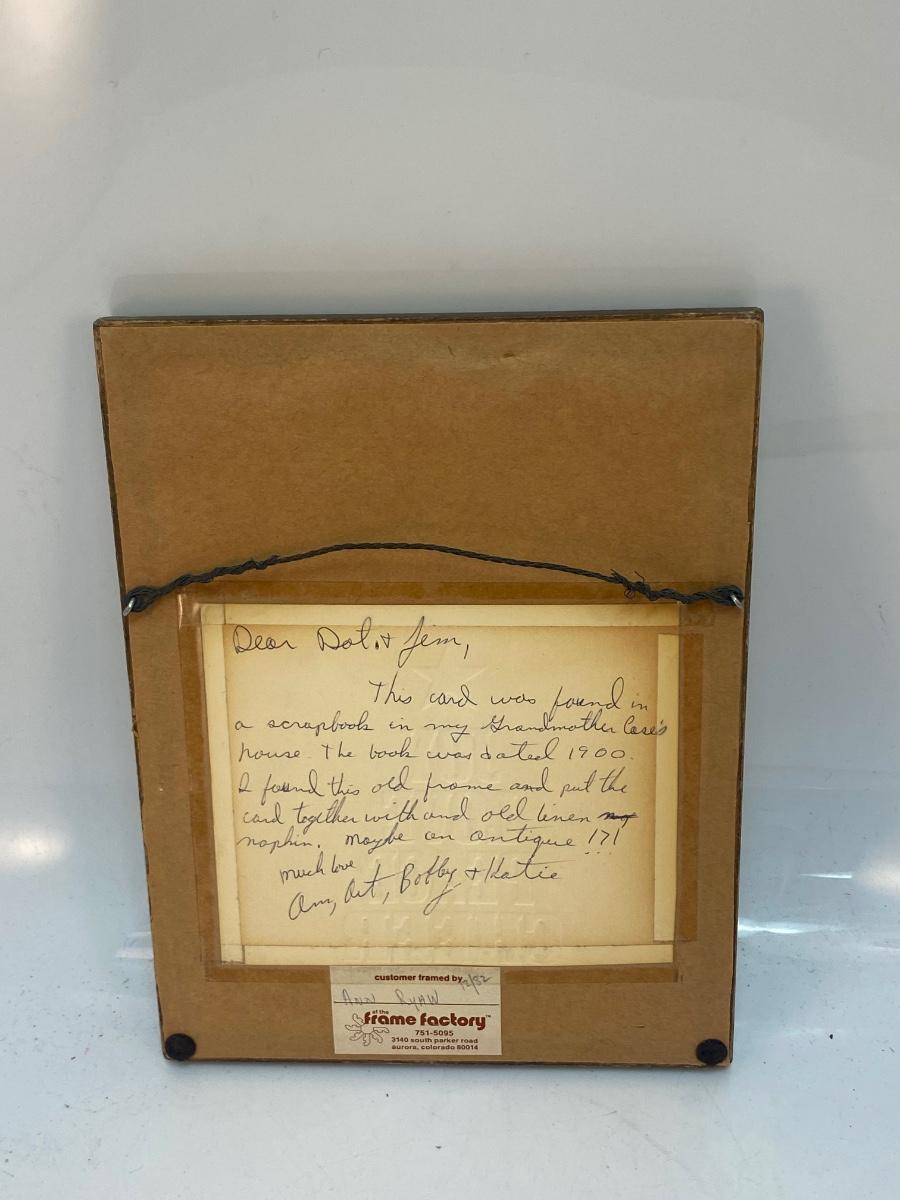 Dear Dot & Jim,
This card was found in
a scrapbook in my Grandmother Case's
house. The book was dated 1900.
I found this old frame and put the
card together with and old linen
napkin. Maybe an antique !?!
much love
Ann, Art, Bobby & Katie
customer framed by 12/82
Ann Ryan
at the
frame factory™
751-5095
3140 south parker road
aurora, colorado 80014